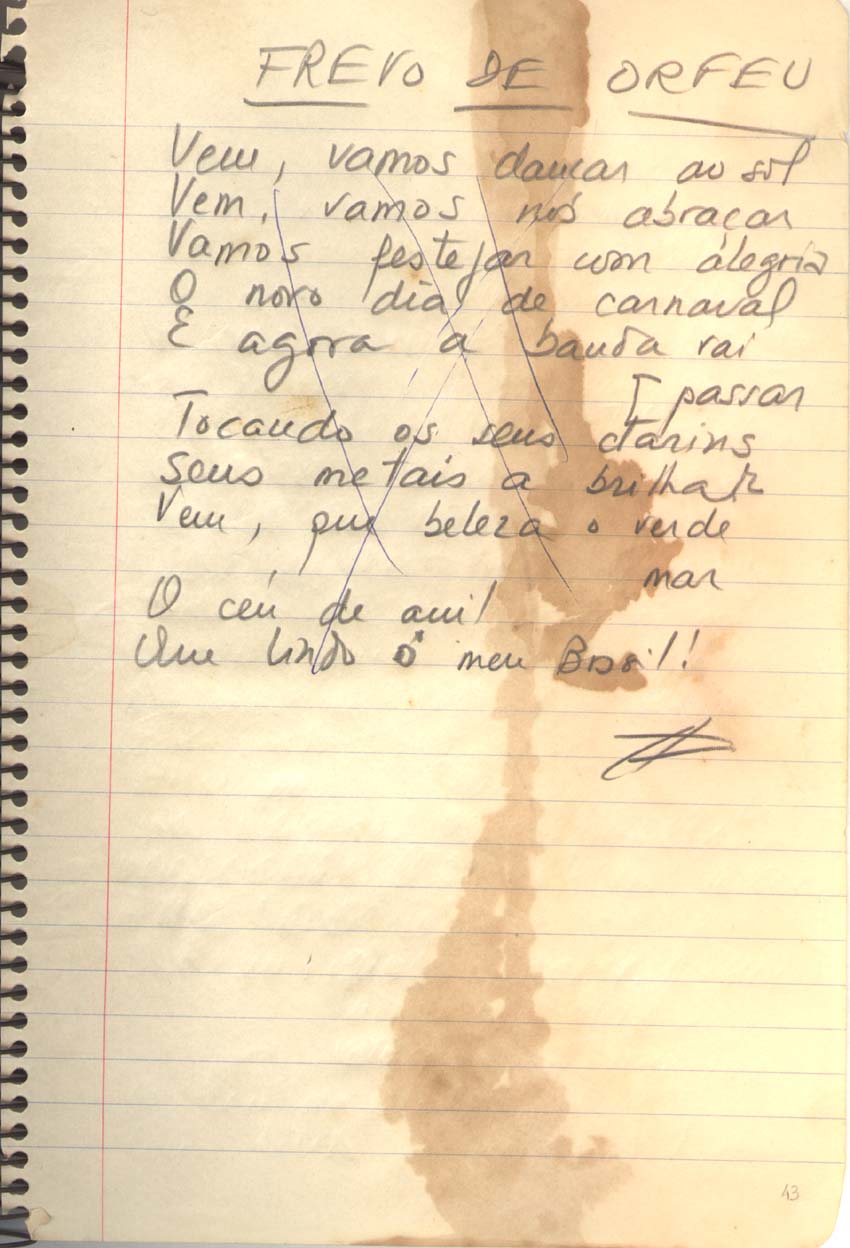 FREVO DE ORFEU
Vem, vamos dançar ao sol
Vem, vamos nós abraçar
Vamos festejar com alegria
O novo dia de carnaval
E agora a banda vai
[ passar
Tocando os seus clarins
Seus metais a brilhar
Vem, que beleza o verde
mar
O céu de anil
Que lindo é meu Brasil!
43